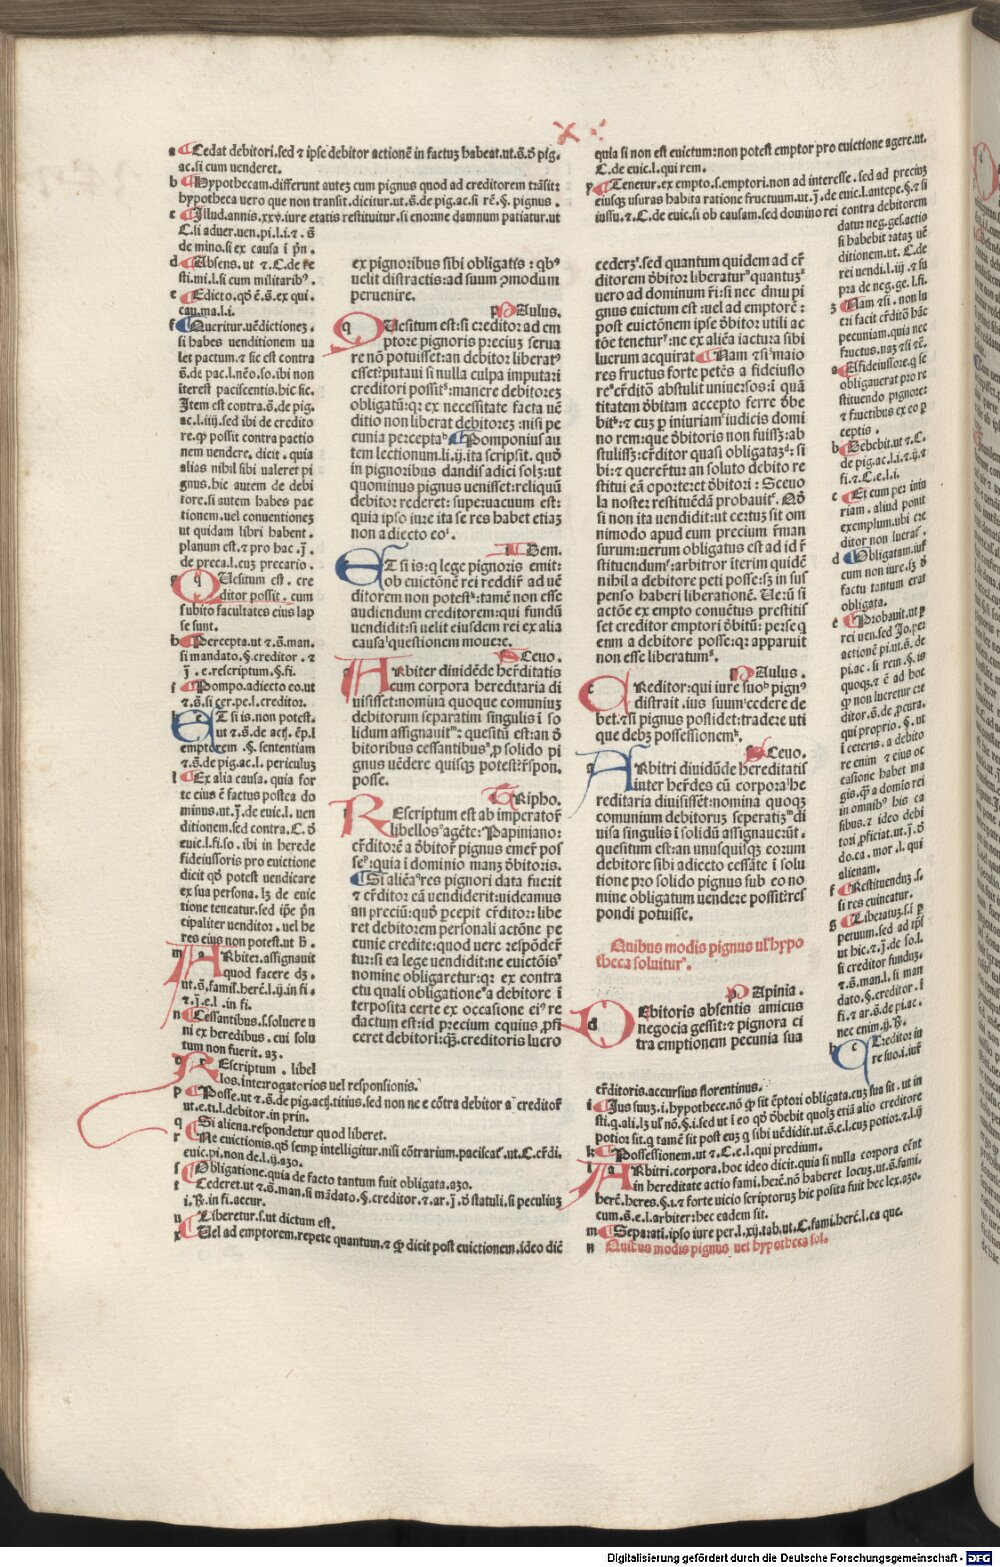 X
a Cedat debitori.sed ⁊ ipse debitor actionē in factuꝫ habeat.ut.s̄.ð pig.
ac.si cum uenderet.
b Hypothecam.differunt auteꝫ cum pignus quod ad creditorem trāsit:
hypotheca uero que non transit.dicitur.ut.s̄.de pig.ac.si rē.§. pignus.
c Illud.annis.xxv.iure etatis restituitur.si enorme damnum patiatur.ut
C.si aduer.uen.pi.l.i.⁊ .s̄
de mino.si ex causa i pn̄.
d Absens.ut ⁊.C.de re
sti.mi.l.si cum militaribꝰ.
e Edicto.qð ē.s̄.ex qui.
cau.ma.l.i.
f Queritur.uēdictioneꝫ.
si habes uenditionem ua
let pactum.⁊ sic est contra
s̄.de pac.l.nēo.so.ibi non
īterest paciscentis.hic sic.
Item est contra.s̄.de pig.
ac.l.iiij.sed ibi de credito
re.ꝙ possit contra pactio
nem uendere.dicit.quia
alias nihil sibi ualeret pi
gnus.hic autem de debi
tore.si autem habes pac
tionem.uel conuentioneꝫ
ut quidam libri habent.
planum est.⁊ pro hac.j̄.
de preca.l.cuꝫ precario.
g Quesitum est. cre
ditor possit. cum
subito facultates eius lap
se sunt.
h Percepta.ut ⁊.s̄.man.
si mandato.§.creditor. ⁊
j̄ .e.rescriptum.§.fi.
i Pompo.adiecto eo.ut
⁊.s̄.si cer.pe.l.creditor.
k Et si is.non potest.
ut ⁊.s̄.de actj.ēp.l
emptorem .§. sententiam
⁊.s̄.de pig.ac.l. periculuꝫ
l Ex alia causa. quia for
te eius ē factus postea do
minus.ut.j̄.de euic.l. uen
ditionem.sed contra.C.ð
euic.l.fi.so.ibi in herede
fideiussoris pro euictione
dicit qð potest uendicare
ex sua persona.lꝫ de euic
tione teneatur.sed ip̄e pn̄
cipaliter uenditor.uel he
res eius non potest.ut ħ.
m Arbiter.assignauit
quod facere dꝫ.
ut.s̄.famil̄.herc̄.l.ij.in fi.
⁊.j̄.e.l .in fi.
n Cessantibus.s.soluere u
ni ex heredibus. cui solu
tum non fuerit.aꝫ.
o Rescriptum. libel
los.interrogatorios uel responsionis.
p Posse.ut ⁊.s̄.de pig.actj.titius.sed non ne e cōtra debitor a creditor̄
ut.e.ti.l.debitor.in prin.
q Si aliena.respondetur quod liberet.
r Ne euictionis.qð semꝑ intelligitur.nisi cōtrarium.paciscat̄.ut.C.cr̄di.
euic.pi.non de.l.ij.azo.
s Obligatione.quia de facto tantum fuit obligata.azo.
t Cederet.ut ⁊.s̄.man.si mādato.§.creditor.⁊ ar.j̄ ð statuli.si peculiuꝫ
i.R̄.in fi.accur.
u Liberetur.s.ut dictum est.
x Uel ad emptorem.repete quantum.⁊ ꝙ dicit post euictionem.ideo dic̄
ex pignoribus sibi obligatis : qbꝰ
uelit distractis:ad suum ꝯmodum
peruenire.
Paulus.
Quesitum est:si creditor ad em
ptore pignoris preciuꝫ serua
re nō potuisset:an debitor liberatꝰ
esset?putaui si nulla culpa imputari
creditori possitᵍ:manere debitoreꝫ
obligatū:qꝛ ex necessitate facta uē
ditio non liberat debitoreꝫ:nisi pe
cunia perceptaʰ Pomponius au
tem lectionum.li.ij.ita scripsit. quð
in pignoribus dandis adici solꝫ:ut
quominus pignus uenisset:reliquū
debitor redderet: superuacuum est:
quia ipso iure ita se res habet etiaꝫ
non adiecto eoⁱ.
Idem.
Et si is:q lege pignoris emit:
ob euictōnē rei reddir̄ ad uē
ditorem non potestᵏ:tamē non esse
audiendum creditorem:qui fundū
uendidit:si uelit eiusdem rei ex alia
causaˡ questionem mouere.
Sceuo.
Arbiter diuidēde her̄ditatis
cum corpora hereditaria di
uisisset:nomina quoque comuniuꝫ
debitorum separatim singulis ī so
lidum assignauitᵐ: quesitū est:an ð
bitoribus cessantibusⁿ,ꝓ solido pi
gnus uēdere quisqꝫ potest?r̄spon.
posse.
Tripho.
Rescriptum est ab imperator̄
libellosᵒ agēte: Papiniano:
cr̄ditorē a ðbitor̄ pignus emer̄ pos
seᵖ:quia ī dominio manꝫ ðbitoris.
Si aliēaᑫres pignori data fuerit
⁊ cr̄ditor eā uendiderit:uideamus
an preciū:quð ꝑcepit cr̄ditor: libe
ret debitorem personali actōne pe
cunie credite:quod uere respōder̄
tur:si ea lege uendidit:ne euictōisʳ
nomine obligaretur:qꝛ ex contra
ctu quali obligationeˢ a debitore i
terposita certe ex occasione eiꝰ re
dactum est:id precium equius ꝓfi
ceret debitori:qꝫ creditoris lucro
quia si non est euictum:non potest emptor pro euictione agere.ut.
C.de euic.l.qui rem.
y Tenetur.ex empto.s.emptori.non ad interesse.sed ad preciuꝫ
eiusqꝫ usuras habita ratione fructuum.ut.j̄.de euic.l.antepe.§.⁊ si
iussu.⁊.C.de euic.si ob causam.sed domino rei contra debitorem
datur neg.ges.actio
si habebit ratam uē
ditionem.ut. C.de
rei uendi.l.iij.⁊ su
pra de neg.ge.l.fi.
z Nam ⁊si.non lu
cri facit cr̄ditō hāc
pecuniam.quia nec
fructus.naꝫ ⁊si rc̄.
a A fideiussore.q se
obligauerat pro re
stituendo pignore:
⁊ fructibus ex eo ꝑ
ceptis.
b Debebit.ut ⁊.C.
de pig.ac.l.i.⁊.ij.⁊
fi.⁊.C.e.l.i.
c Et cum per iniu
riam. aliud ponit
exemplum.ubi cre
ditor non lucrat̄.
d Obligatam.iur̄
cum non iure.sꝫ ð
factu tantum erat
obligata.
e Probauit.ut ꝑ
rei uen.sed Jo.per
actionē pi.ut.s̄. de
pi.ac. si rem .§. is
quoqꝫ.⁊ ē ad hoc
ꝙ non lucretur cre
ditor.s̄.de ꝓcura.
qui proprio. §. ut
i ceteris. a debito
re enim ⁊ eius oc
casione habet ma
gis.qꝫ a domio rei
in omnibꝰ his ca
sibus.⁊ ideo debi
tori ꝓficiat.ut.j̄.ð
do.ca. mor.l. qui
alienam.
f Restituenduꝫ.s.
si res euincatur.
g Liberatus.s.ī ꝑ
petuum.sed ad tp̄s
ut hic.⁊.j̄.de so.l.
si creditor fundū.
⁊.s̄.man.l. si man
dato.§.creditor.ī
fi.⁊ ar.s̄.de pi.ac.
nec enim.ij.R̄.
h Creditor iu
re suo.i.iur̄
cederꝫ.sed quantum quidem ad cr̄
ditorem ðbitor liberaturˢ quantuꝫ
uero ad dominum r̄i:si nec dnui pi
gnus euictum est :uel ad emptorē:
post euictōnem ipse ðbitor utili ac
tōe teneturʸ:ne ex aliēa iactura sibi
lucrum acquirat Nam ⁊siᶻ maio
res fructus forte petēs a fideiussoᵃ
reᵃcr̄ditō abstulit uniuersos: i quā
titatem ðbitam accepto ferre ðbe
bitᵇ:⁊ cuꝫ ꝑ iniuriamᶜiudicis domi
no rem:que ðbitoris non fuissꝫ:ab
stulissꝫ:cr̄ditor quasi obligataꝫᵈ: si
bi:⁊ querer̄tur:an soluto debito re
stitui eā oporteret ðbitori : Sceuo
la noster restituēdā probauitᵉ. Qð
si non ita uendidit:ut certuꝫ sit om
nimodo apud eum precium r̄man
surum:uerum obligatus est ad id r̄
stituendumᶠ:arbitror iterim quidē
nihil a debitore peti posse:sꝫ in sus
penso haberi liberationē. Ueꝛū si
actōe ex empto conuētus prestitis
set creditor emptori ðbitū: perseq
enm a debitore posse:qꝛ apparuit
non esse liberatumᵍ.
Paulus.
Creditor:qui iure suoʰ pignꝰ
distrait.ius suumⁱcedere de
bet.⁊si pignus possidet:tradere uti
que debꝫ possessionemᵏ.
Sceuo.
Arbitri diuidūde hereditatis
inter her̄des cū corporaˡhe
reditaria diuisissēt:nomina quoqꝫ
comunium debitorꝫ seperatiᵐ di
uisa singulis i solidū assignauerūt.
quesitum est:an unusquisqꝫ eorum
debitore sibi adiecto cessāte i solu
tione pro solido pignus sub eo no
mine obligatum uendere possit?res
pondi potuisse.
Quibus modis pignus ul̄ hypo
theca soluiturⁿ.
Papinia.
Debitoris absentis amicus
negocia gessit:⁊ pignora ci
tra emptionem pecunia sua
cr̄ditoris.accursius florentinus.
i Ius suuꝫ.i.hypothece.nō ꝙ sit ēptori obligata.cuꝫ sua sit. ut in
sti.q.ali.lꝫ ul̄ nō.§.i.sed ut ī eo qð ðbebit quolꝫ etiā alio creditore
potior sit.q tamē sit post euꝫ q sibi uēdidit.ut.s̄.e.l.cuꝫ potior.⁊.l.ij
k Possessionem.ut ⁊.C.e.l.qui predium.
l Arbitri.corpora.hoc ideo dicit.quia si nulla corpora eēnt
in hereditate actio fami.herc̄.nō haberet locuꝫ.ut.s̄.fami.
herc̄.heres.§.i.⁊ forte uicio scriptoruꝫ hic posita fuit hec lex.azo.
cum.s̄.e.l.arbiter:hec eadem sit.
m Separati.ipso iure per.l.xij.tab.ut.C.fami.herc̄.l.ea que.
n Quibus modis pignus uel hypotheca sol.
Digitalisierung gefördert durch die Deutsche Forschungsgemeinschaft - DFG